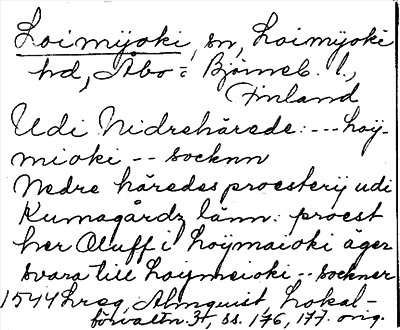 Loimijoki, sn, Loimijoki
hd, Åbo = Björneb. l.,
Finland
Udi Nidrehärede: --- Loÿ-
mioki -- socknn
Nedre häredes proesterij udi
Kumagårdz länn: proest
her Oluff i Loÿmaioki äger
svara till Loijmeioki -- sockner
1544 hrsg. Almquist, Lokal-
förvaltn. 3, ss. 176, 177. orig.